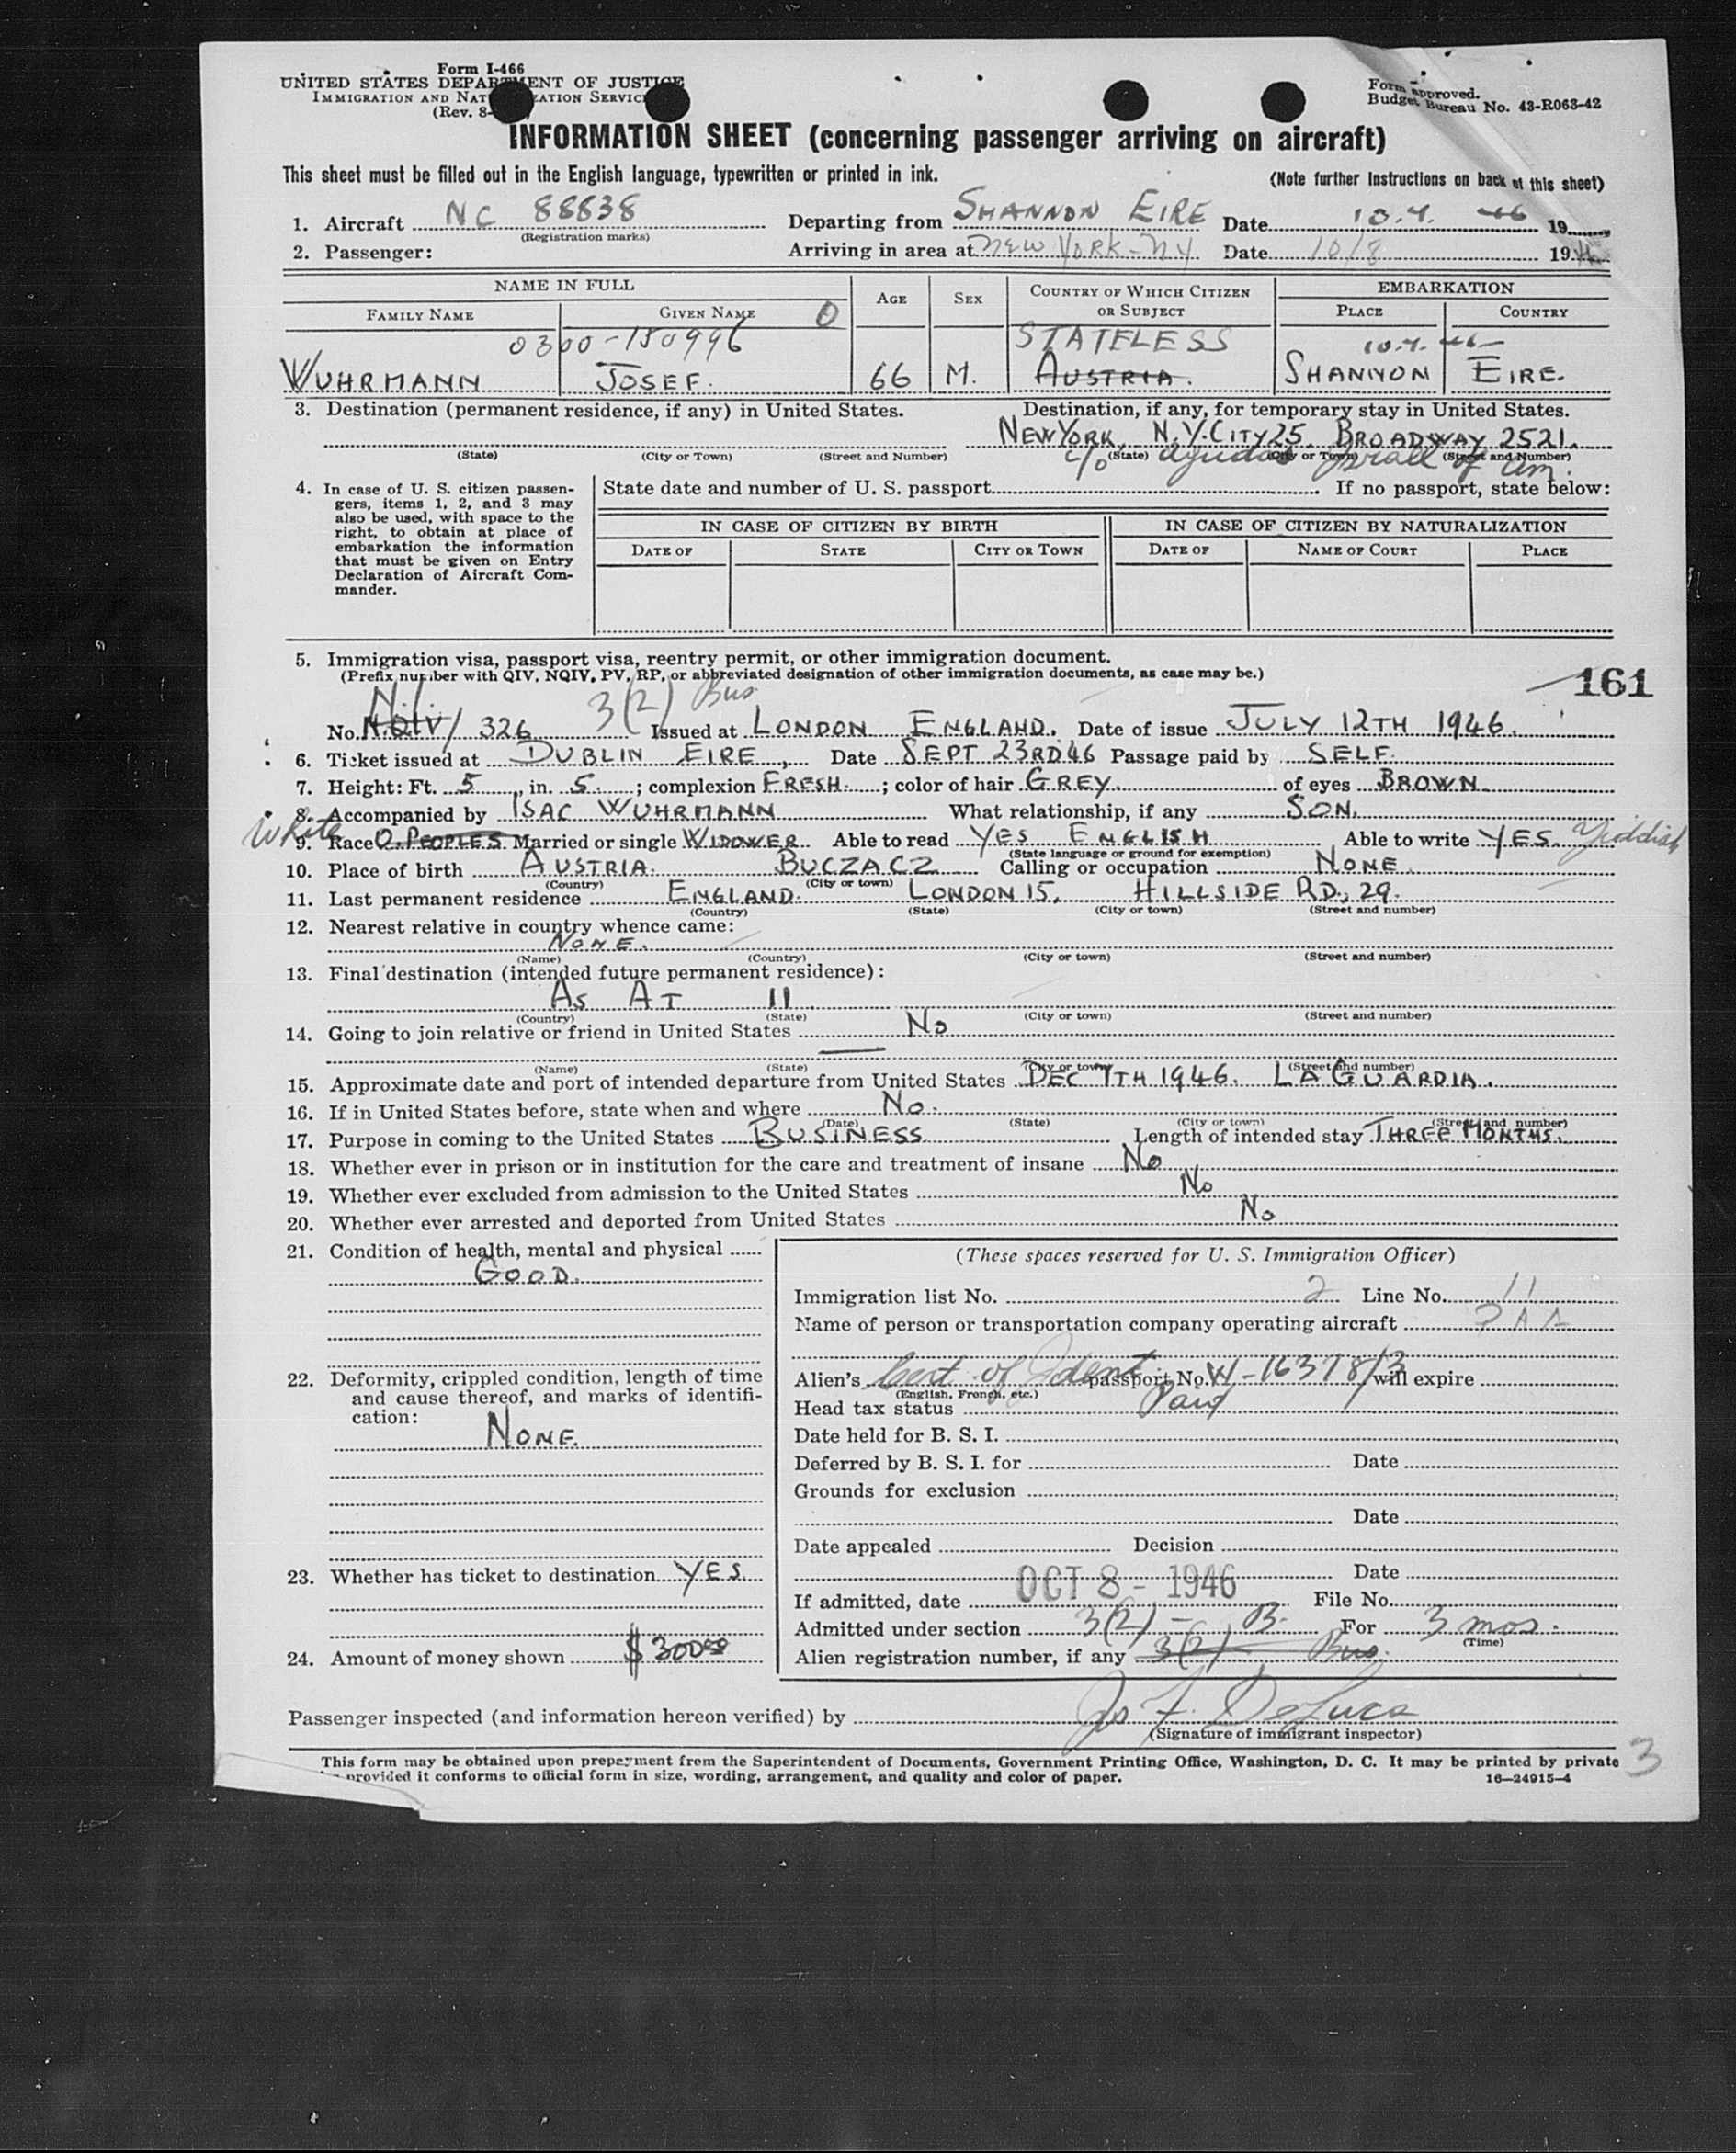 Form I-466
UNITED STATES DEPARTMENT OF JUSTICE
IMMIGRATION AND NATURALIZATION SERVICE
(Rev. 8-
Form approved.
Budget Bureau No. 43-R063-42
INFORMATION SHEET (concerning passenger arriving on aircraft)
This sheet must be filled out in the English language, typewritten or printed in ink. (Note further Instructions on back of this sheet)
1. Aircraft NC 88838 Departing from SHANNON EIRE Date 10.7. 46 19
(Registration marks)
2. Passenger: Arriving in area at NEW YORK-NY Date 10/8 1946
NAME IN FULL AGE SEX COUNTRY OF WHICH CITIZEN OR SUBJECT EMBARKATION
FAMILY NAME GIVEN NAME 0 PLACE COUNTRY
0300-150996 STATELESS 10.7. 46
WUHRMANN JOSEF. 66 M. AUSTRIA. SHANNON EIRE.
3. Destination (permanent residence, if any) in United States. Destination, if any, for temporary stay in United States.
NEW YORK, N.Y. CITY 25. BROADWAY 2521.
(State) (City or Town) (Street and Number) (State) (City or Town) (Street and Number)
c/o Agudas Israel of Am.
4. In case of U. S. citizen passengers, items 1, 2, and 3 may also be used, with space to the right, to obtain at place of embarkation the information that must be given on Entry Declaration of Aircraft Commander.
State date and number of U. S. passport If no passport, state below:
IN CASE OF CITIZEN BY BIRTH IN CASE OF CITIZEN BY NATURALIZATION
DATE OF STATE CITY OR TOWN DATE OF NAME OF COURT PLACE
5. Immigration visa, passport visa, reentry permit, or other immigration document.
(Prefix number with QIV, NQIV, PV, RP, or abbreviated designation of other immigration documents, as case may be.)
161
N.I. 3(2) Bus
No. N.QIV/ 326 Issued at LONDON ENGLAND. Date of issue JULY 12TH 1946.
6. Ticket issued at DUBLIN EIRE, Date SEPT 23RD 46 Passage paid by SELF.
7. Height: Ft. 5, in. 5.; complexion FRESH.; color of hair GREY. of eyes BROWN
8. Accompanied by ISAC WUHRMANN What relationship, if any SON.
White
9. Race O.PEOPLES Married or single WIDOWER Able to read YES ENGLISH Able to write YES. Yiddish
(State language or ground for exemption)
10. Place of birth AUSTRIA. BUCZACZ Calling or occupation NONE.
(Country) (City or town)
11. Last permanent residence ENGLAND. LONDON 15. HILLSIDE RD., 29.
(Country) (State) (City or town) (Street and number)
12. Nearest relative in country whence came:
NONE.
(Name) (Country) (City or town) (Street and number)
13. Final destination (intended future permanent residence):
AS AT 11
(Country) (State) (City or town) (Street and number)
14. Going to join relative or friend in United States No
(Name) (State) (City or town) (Street and number)
15. Approximate date and port of intended departure from United States DEC 7TH 1946. LA GUARDIA.
16. If in United States before, state when and where No.
(Date) (State) (City or town) (Street and number)
17. Purpose in coming to the United States BUSINESS Length of intended stay THREE MONTHS.
18. Whether ever in prison or in institution for the care and treatment of insane No
19. Whether ever excluded from admission to the United States No
20. Whether ever arrested and deported from United States No
21. Condition of health, mental and physical
GOOD.
22. Deformity, crippled condition, length of time and cause thereof, and marks of identification:
NONE.
23. Whether has ticket to destination YES.
24. Amount of money shown $300.00
(These spaces reserved for U. S. Immigration Officer)
Immigration list No. 2 Line No. 11
Name of person or transportation company operating aircraft PAA
Alien's Cert. of Ident. passport No. W-16378/3 will expire
(English, French, etc.)
Head tax status Paid
Date held for B. S. I.
Deferred by B. S. I. for Date
Grounds for exclusion
Date
Date appealed Decision
Date
If admitted, date OCT 8 - 1946 File No.
Admitted under section 3(2) - B. For 3 mos.
(Time)
Alien registration number, if any 3(2) Bus.
Passenger inspected (and information hereon verified) by Jos F. DeLuca
(Signature of immigrant inspector)
This form may be obtained upon prepayment from the Superintendent of Documents, Government Printing Office, Washington, D. C. It may be printed by private
provided it conforms to official form in size, wording, arrangement, and quality and color of paper. 16—24915-4
3